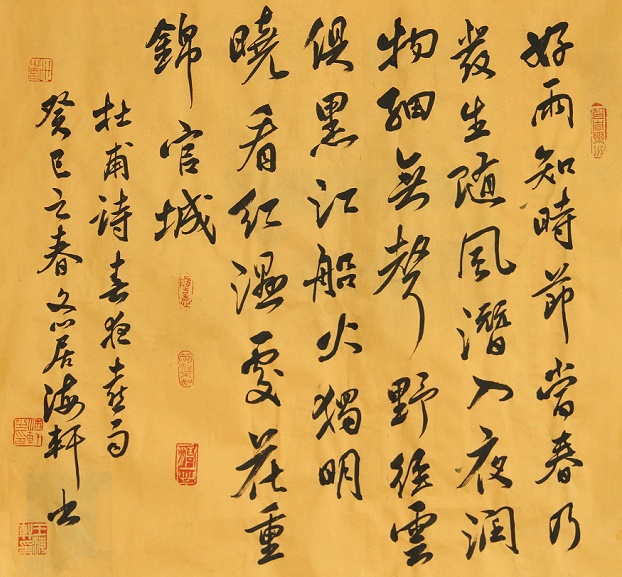 好雨知時節當春乃
發生随風潛入夜潤
物細無聲野徑雲
俱黑江船火獨明
曉看紅濕處花重
錦官城
杜甫詩春夜喜雨
癸巳之春文心居海軒書